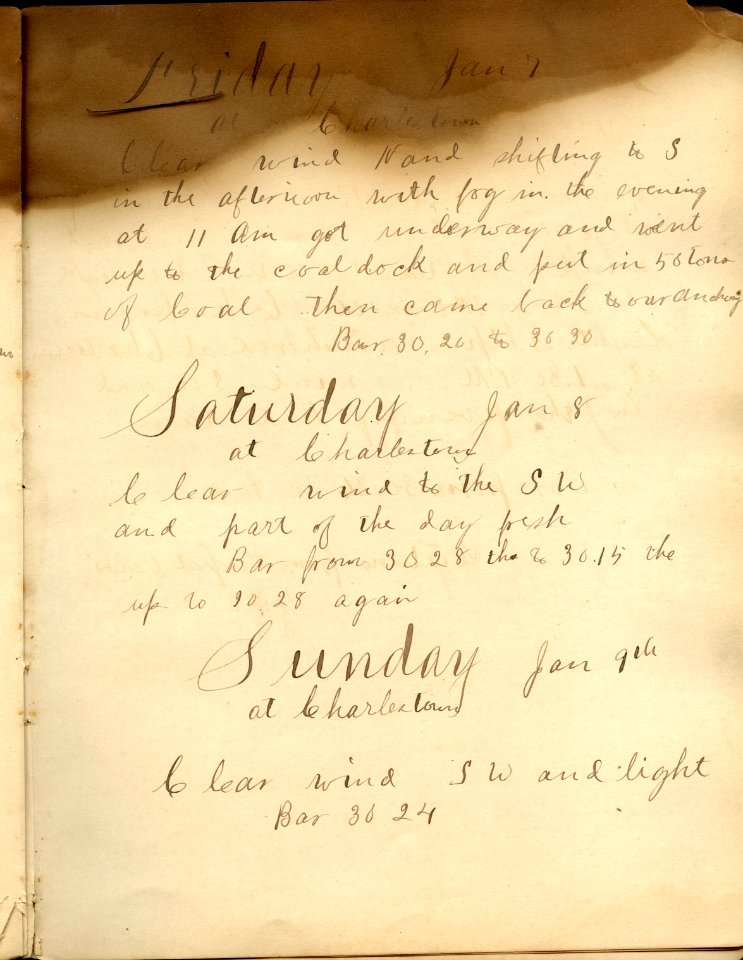 Friday Jan 7
at Charlestown
Clear wind N and shifting to S
in the afternoon with fog in the evening
at 11 Am got underway and went
up to the coal dock and put in 50 tons
of Coal then came back to our anchorig
Bar 30.20 to 30 30
Saturday Jan 8
at Charlestown
Clear wind to the S W
and part of the day fresh
Bar from 30 28 the to 30.15 the
up to 30.28 again
Sunday Jan 9th
at Charlestown
Clear wind S W and light
Bar 30 24